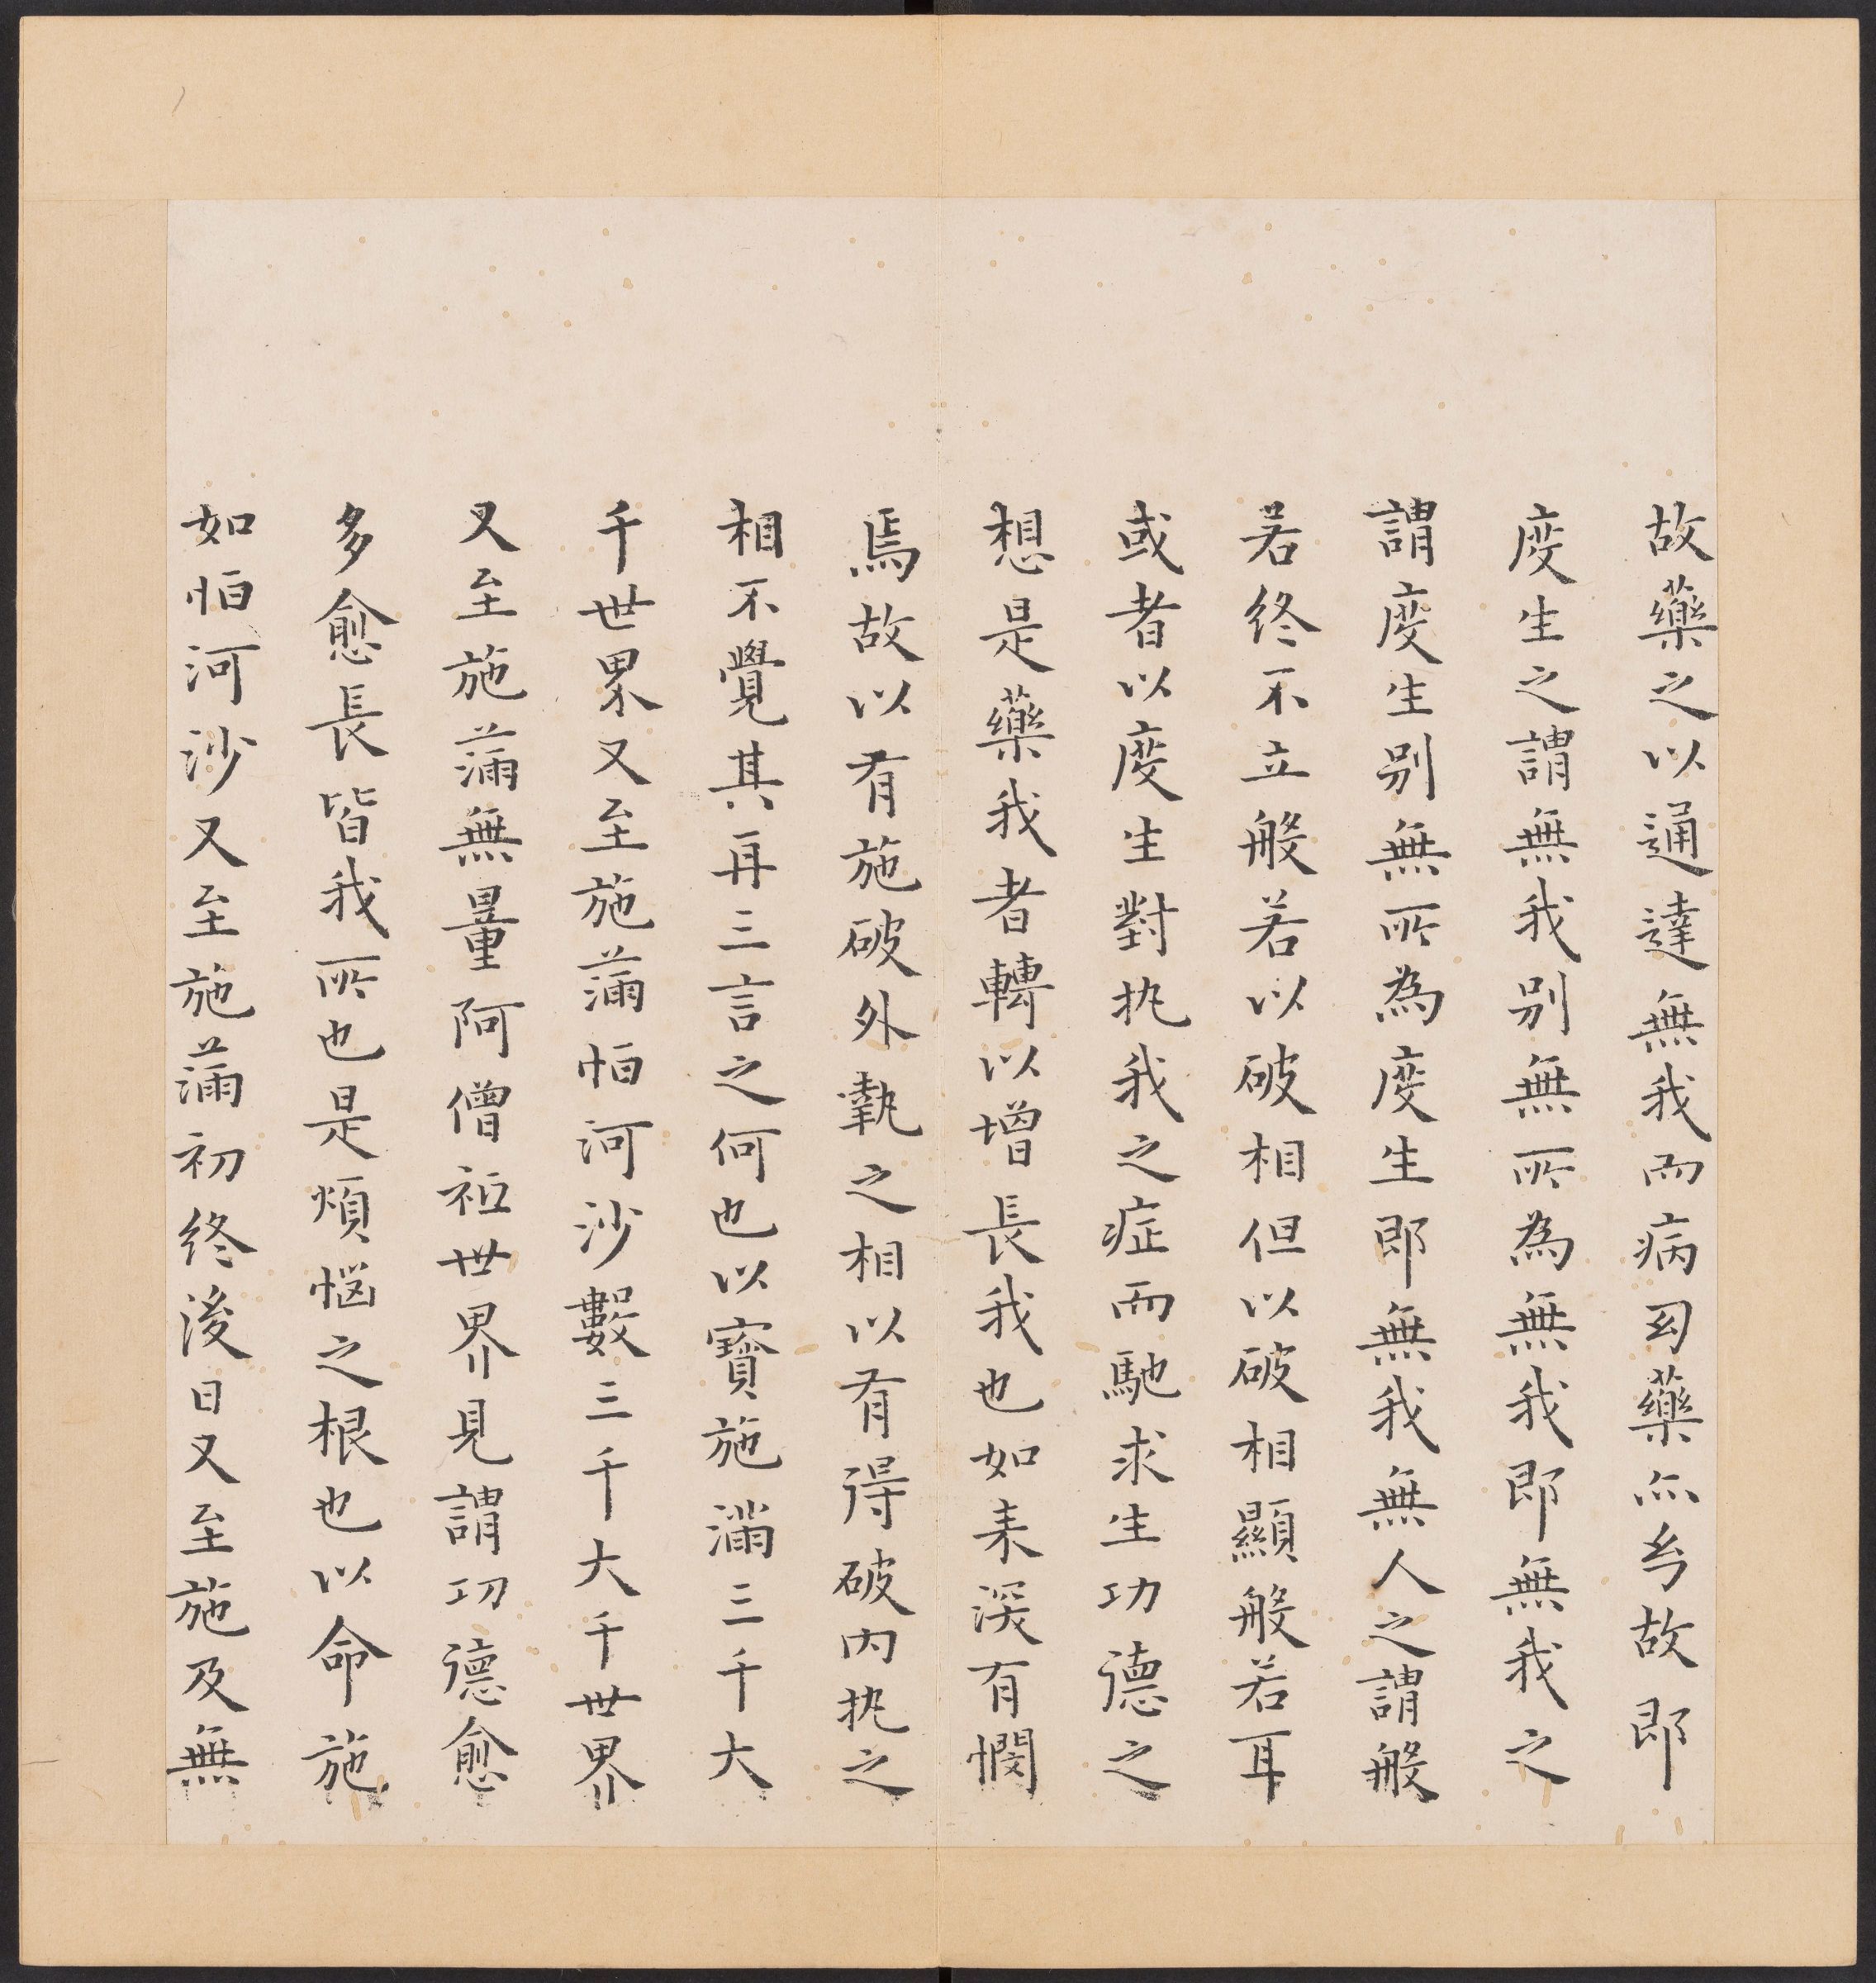 故藥之以通達無我而病幻藥亦幻故即
度生之謂無我別無所為無我即無我之
謂度生別無所為度生即無我無人之謂般
若終不立般若以破相但以破相顯般若耳
或者以度生對执我之症而馳求生功德之
想是藥我者轉以增長我也如来深有憫
焉故以有施破外執之相以有得破内执之
相不覺其再三言之何也以寶施滿三千大
千世界又至施滿恒河沙數三千大千世界
又至施滿無量阿僧祇世界見謂功德愈
多愈長皆我所也是煩惱之根也以命施
如恒河沙又至施滿初終後日又至施及無